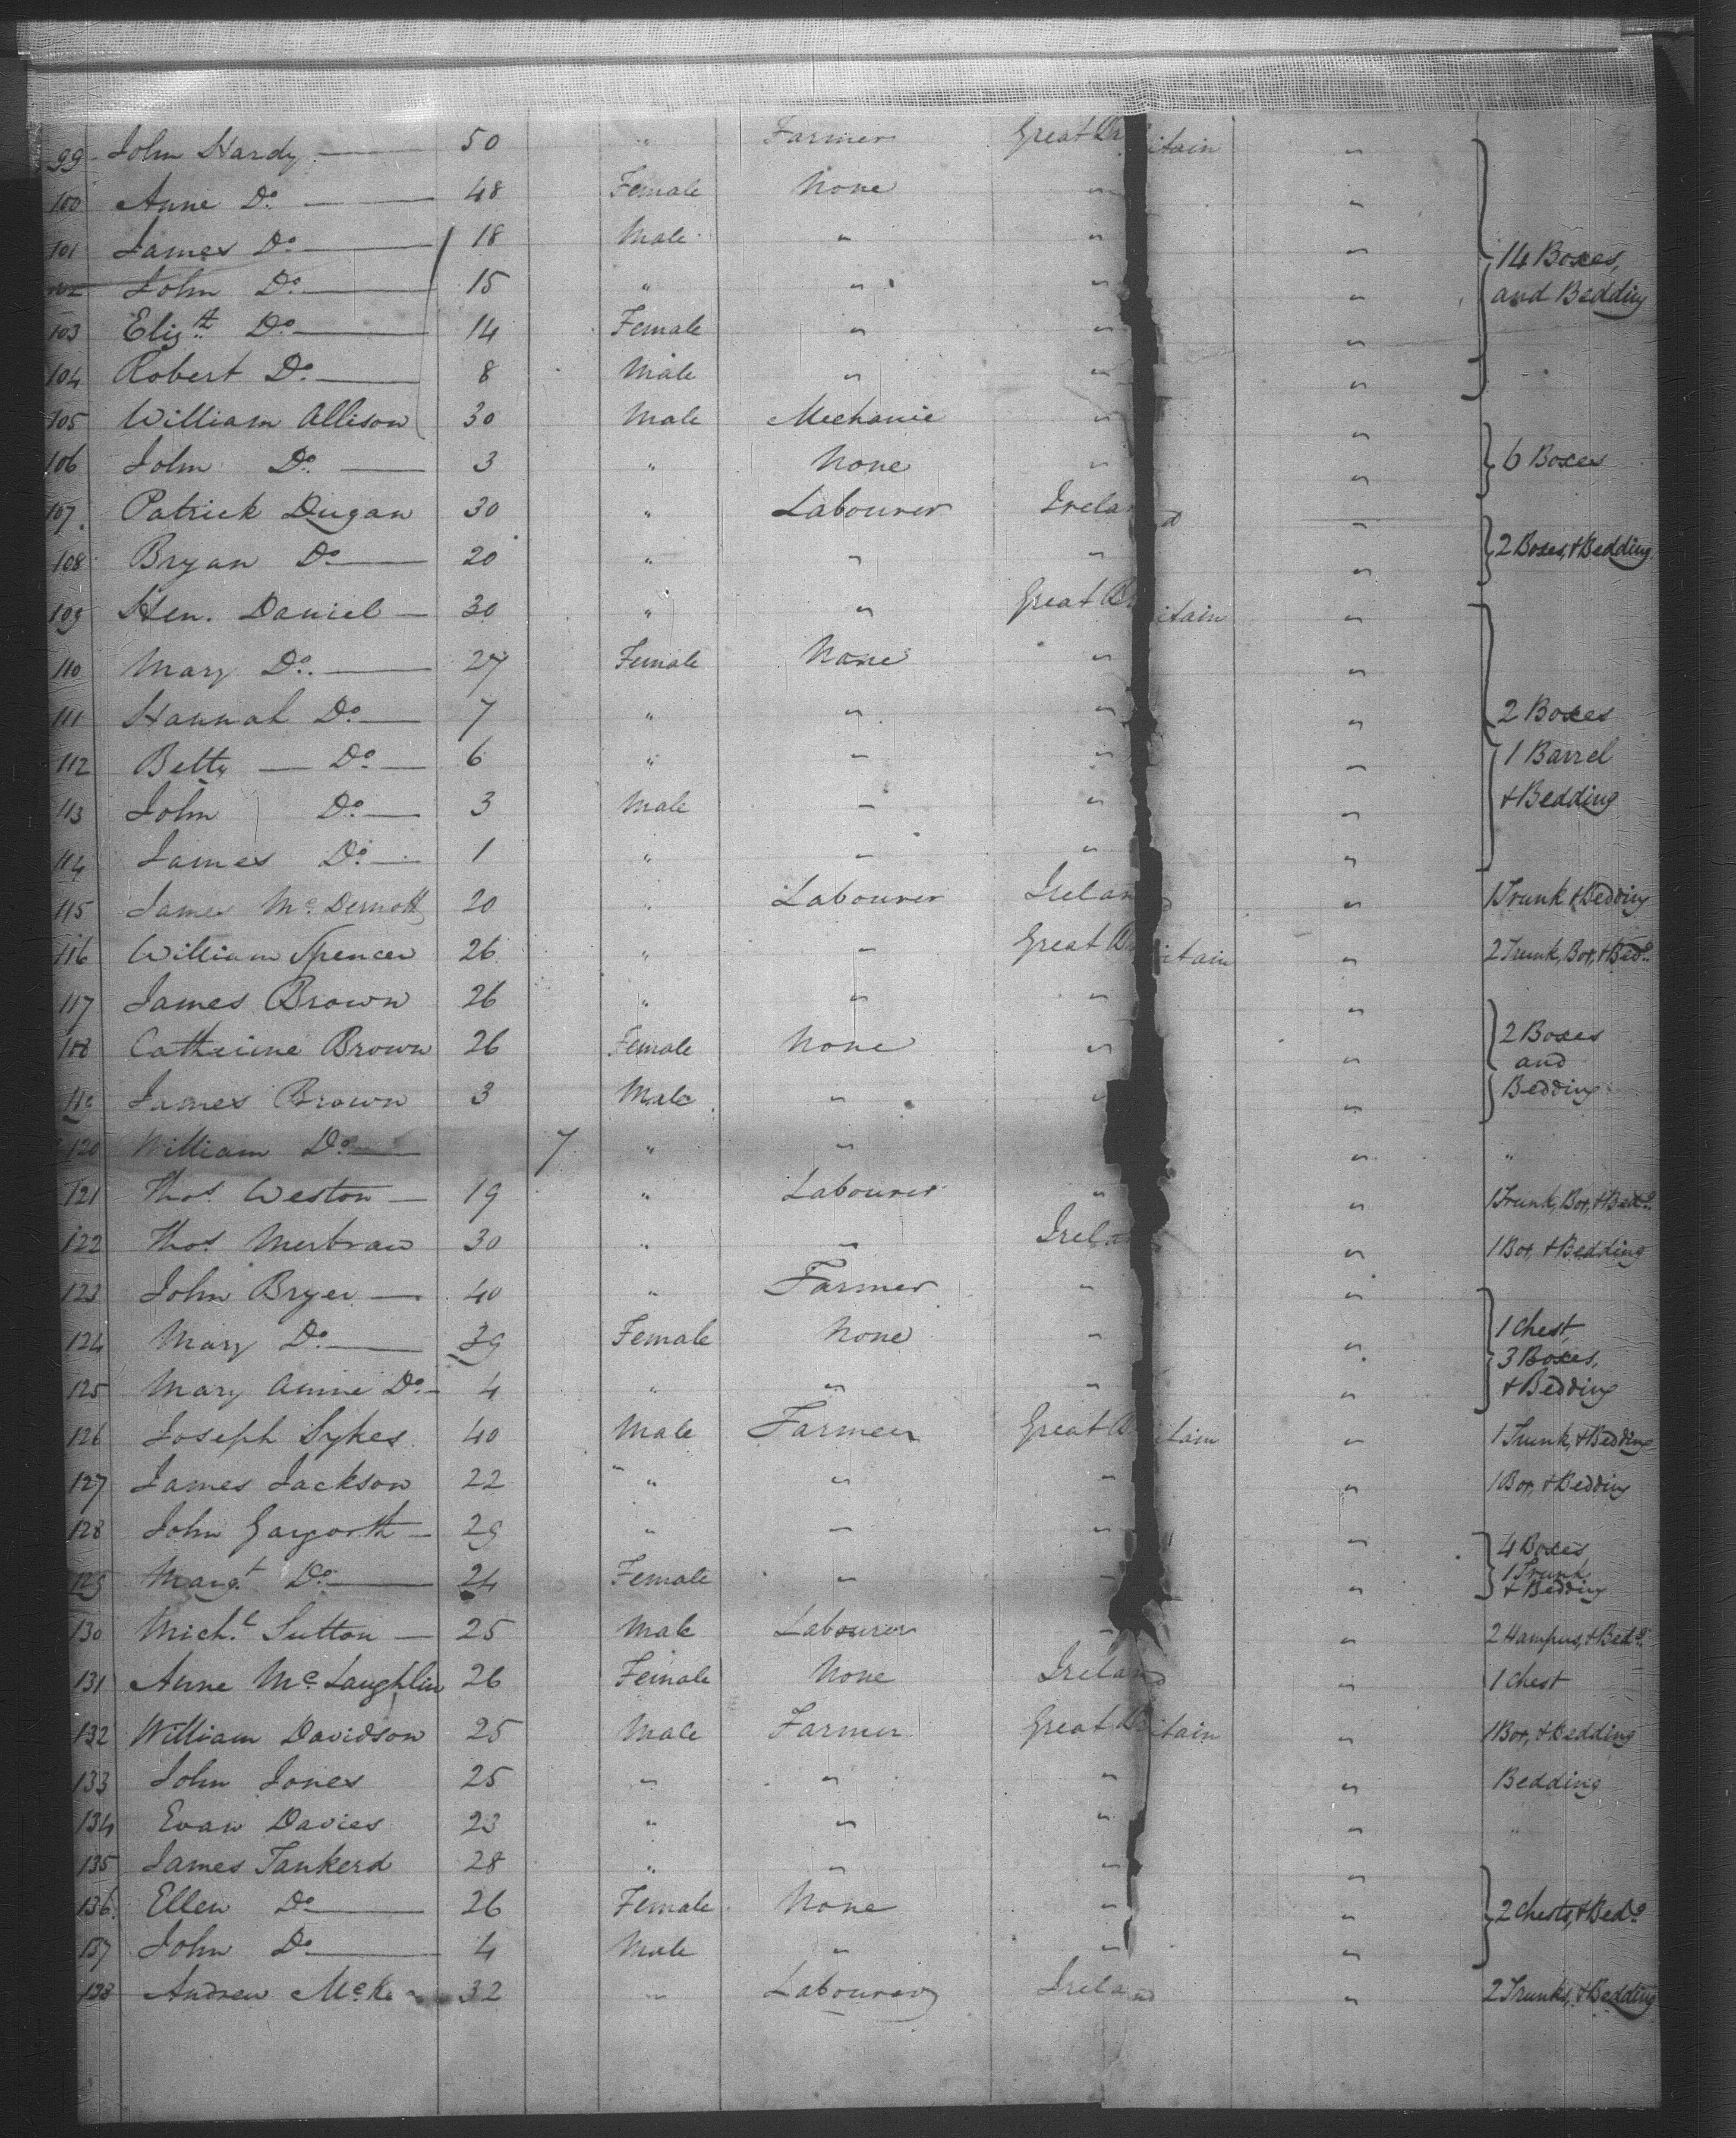 99 John Hardy 50 " Farmer Great Britain "
100 Anne Do. 48 Female None " "
101 James Do. 18 Male " " " 14 Boxes,
102 John Do. 15 " " " " and Bedding
103 Elizth Do. 14 Female " " "
104 Robert Do. 8 Male " " "
105 William Allison 30 Male Mechanic " "
106 John Do. 3 " None " " 6 Boxes
107 Patrick Dugan 30 " Labourer Ireland "
108 Bryan Do. 20 " " " " 2 Boxes, & Bedding
109 Hen. Daniel 30 " " Great Britain "
110 Mary Do. 27 Female None " "
111 Hannah Do. 7 " " " " 2 Boxes
112 Betty Do. 6 " " " " 1 Barrel
113 John Do. 3 Male " " " & Bedding
114 James Do. 1 " " " "
115 James McDermott 20 " Labourer Ireland " 1 Trunk & Bedding
116 William Spencer 26 " " Great Britain " 2 Trunk, Box, & Bedg.
117 James Brown 26 " " " "
118 Catherine Brown 26 Female None " " 2 Boxes and
119 James Brown 3 Male " " " Bedding
120 William Do. 7 " " " "
121 Thos. Weston 19 " Labourer " " 1 Trunk, Box, & Bedg.
122 Thos. 30 " " Ireland " 1 Box, & Bedding
123 John Bryer 40 " Farmer " "
124 Mary Do. 39 Female None " " 1 Chest, 3 Boxes,
125 Mary Anne Do. 4 " " " " & Bedding
126 Joseph Sykes 40 Male Farmer Great Britain " 1 Trunk, & Bedding
127 James Jackson 22 " " " " 1 Box, & Bedding
128 John Gargorth 29 " " " " 4 Boxes
129 Margt. Do. 24 Female " " " 1 Trunk & Bedding
130 Michl. Sutton 25 Male Labourer " " 2 Hampers, & Bedg.
131 Anne McLaughlin 26 Female None Ireland " 1 Chest
132 William Davidson 25 Male Farmer Great Britain " 1 Box, & Bedding
133 John Jones 25 " " " " Bedding
134 Evan Davies 23 " " " " "
135 James Tankerd 28 " " " "
136 Ellen Do. 26 Female None " " 2 Chests, & Bedg.
137 John Do. 4 Male " " "
138 Andrew 32 " Labourer Ireland " 2 Trunks, & Bedding